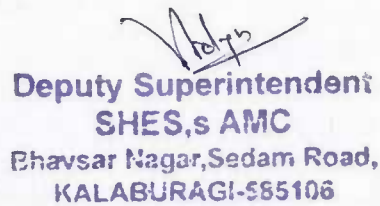 Deputy Superintendent
SHES,s AMC
Bhavsar Nagar,Sedam Road,
KALABURAGI-585106